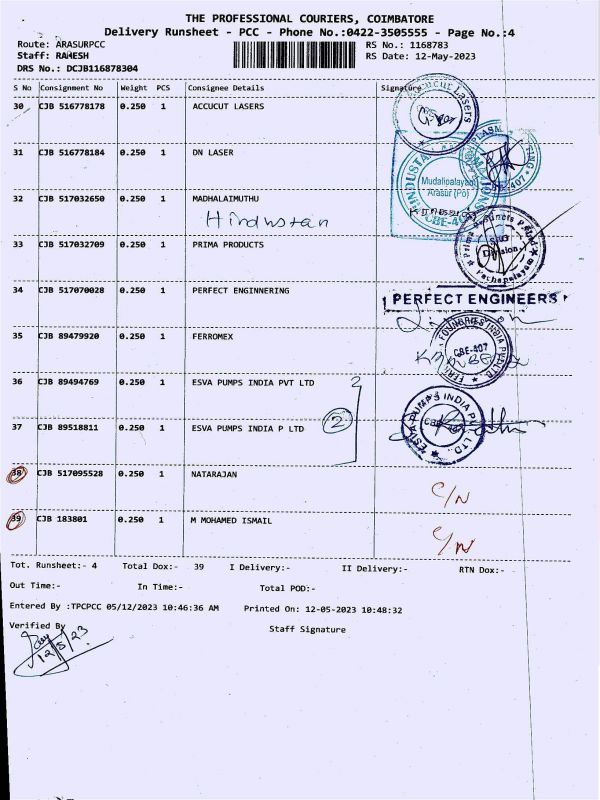 THE PROFESSIONAL COURIERS, COIMBATORE
Delivery Runsheet - PCC - Phone No.:0422-3505555 - Page No.:4
Route: ARASURPCC RS No.: 1168783
Staff: RAHESH RS Date: 12-May-2023
DRS No.: DCJB116878304
S No Consignment No Weight PCS Consignee Details Signature
30 CJB 516778178 0.250 1 ACCUCUT LASERS
31 CJB 516778184 0.250 1 DN LASER
Mudalipalayam
Arasur (Po)
32 CJB 517032650 0.250 1 MADHALAIMUTHU
Hindustan
33 CJB 517032709 0.250 1 PRIMA PRODUCTS
34 CJB 517070028 0.250 1 PERFECT ENGINNERING
PERFECT ENGINEERS
35 CJB 89479920 0.250 1 FERROMEX
CBE-407
36 CJB 89494769 0.250 1 ESVA PUMPS INDIA PVT LTD
2
37 CJB 89518811 0.250 1 ESVA PUMPS INDIA P LTD
ESVA PUMPS INDIA P LTD.
38 CJB 517095528 0.250 1 NATARAJAN
C/N
39 CJB 183801 0.250 1 M MOHAMED ISMAIL
C/N
Tot. Runsheet:- 4 Total Dox:- 39 I Delivery:- II Delivery:- RTN Dox:-
Out Time:- In Time:- Total POD:-
Entered By :TPCPCC 05/12/2023 10:46:36 AM Printed On: 12-05-2023 10:48:32
Verified By Staff Signature
12/5/23